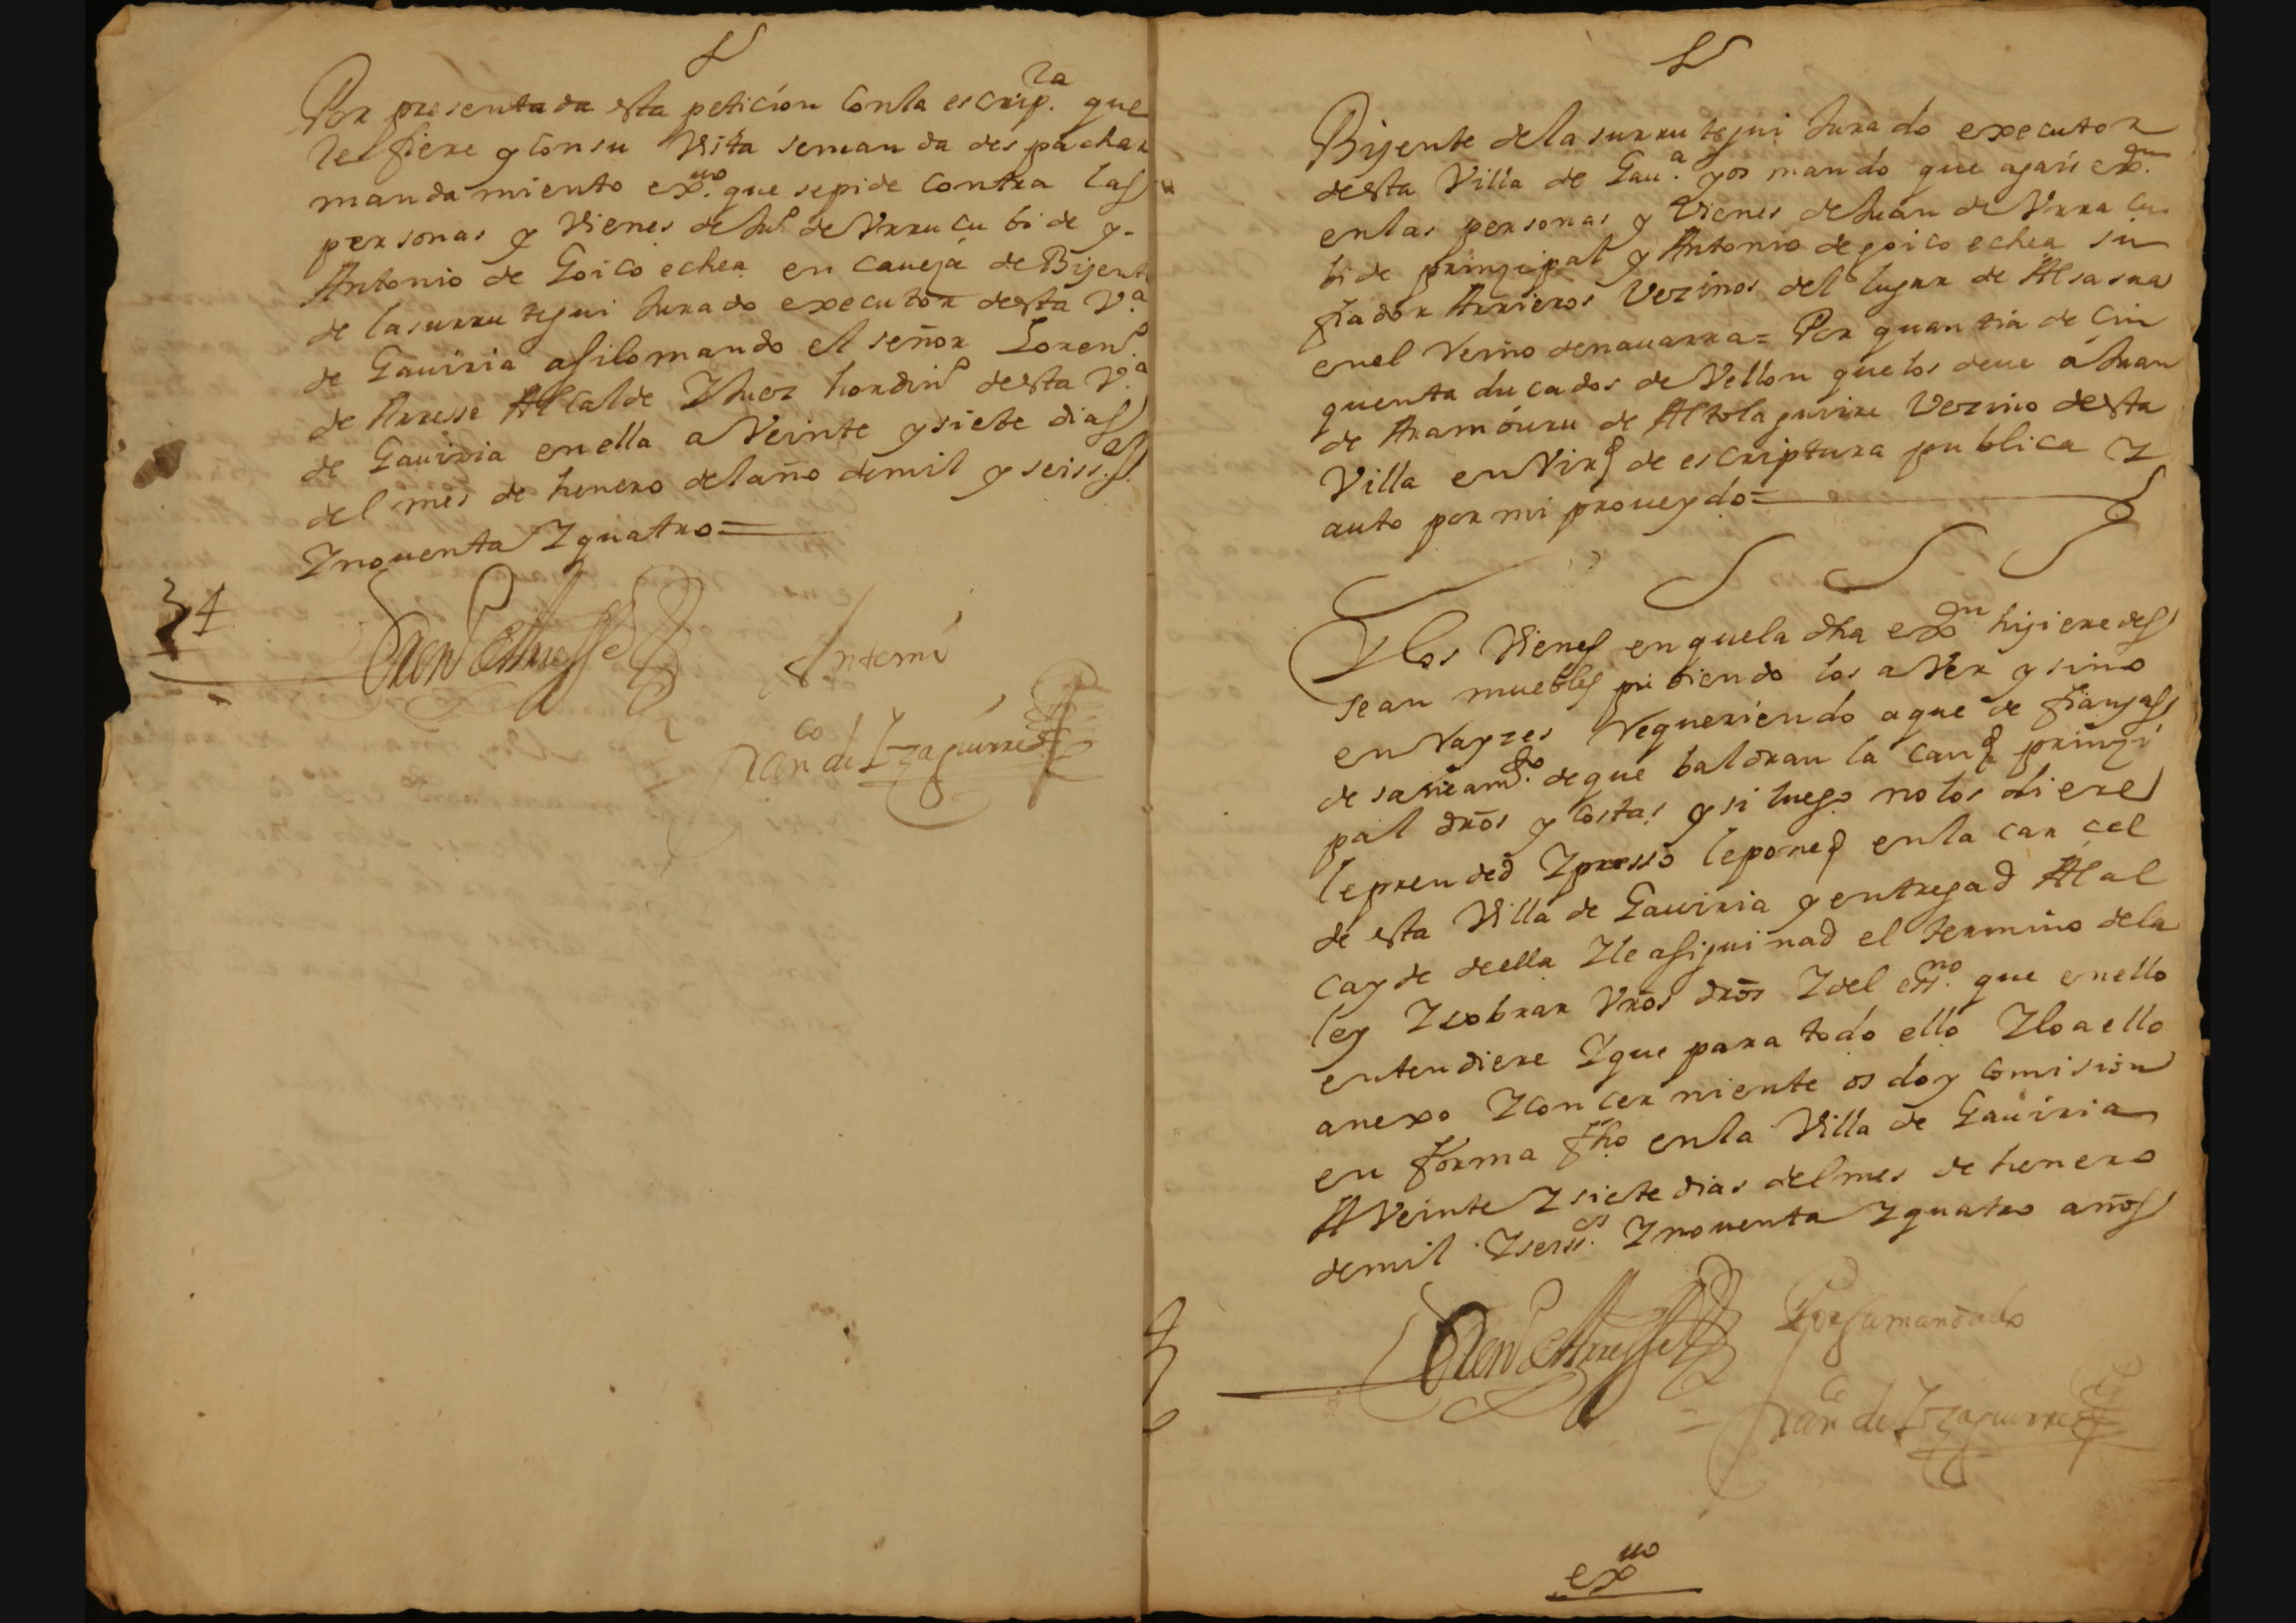 Por presentada esta peticion Conla escrip.ra que
Refiere y Consu Vista semanda despachar
mandamiento ex.uo que sepide Contra las
personas y Vienes deJu.o de Vrrucubide y-
Antonio de Goicoechea en caueça de Bijente
de lasurrutegui Jurado executor desta V.a
de Gauiria asilomando el señor Loren.o
de Arrese Alcalde YJuez hordin.o desta V.a
de Gauiria enella a Veinte ysiete dias
del mes de henero delaño demil y seiss.os
Ynouenta Yquatro=
Loren.o de Arresse
Antemi
Fran.co de Yzaguirre
Bijente delasurrutegui Jurado executor
desta Villa de Gau.a yos mando que agais ex.on
enlas personas y Vienes deJuan de Vrrucu-
bide prinzipal y Antonio degoicoechea su
fiador Arrieros Vezinos del lugar de Alsasua
enel Reino denauarra= Por quantia de Cin
quenta ducados de Vellon quelos deue a Juan
de Aramburu de Altolaguirre Vezino desta
Villa enVird de escriptura publica Y
auto por mi proueydo=
Ylos Vienes enquela dha ex.on hijieredes
sean muebles pudiendo los aVer ysino
enRayzes Requeriendo aque de fianzas
de saneam.to deque baldran la cand prinzi
pal dros y Costas ysi luego nolos diere
leprended Ypresso leponed enla carcel
de esta Villa de Gauiria yentregad Alal
cayde deella Yle asiguinad el termino dela
ley Ycobrar Vros dros Ydel ess.no que enello
entendiere Yque para todo ello Yloaello
anexo Yconcerniente os doy Comision
en forma fho enla Villa de Gauiria
A Veinte Ysiete dias delmes de henero
demil Yseiss.os Ynouenta Yquatro años
Loren.o de Arresse
Porsumandado
Fran.co de Yzaguirre
ex.uo